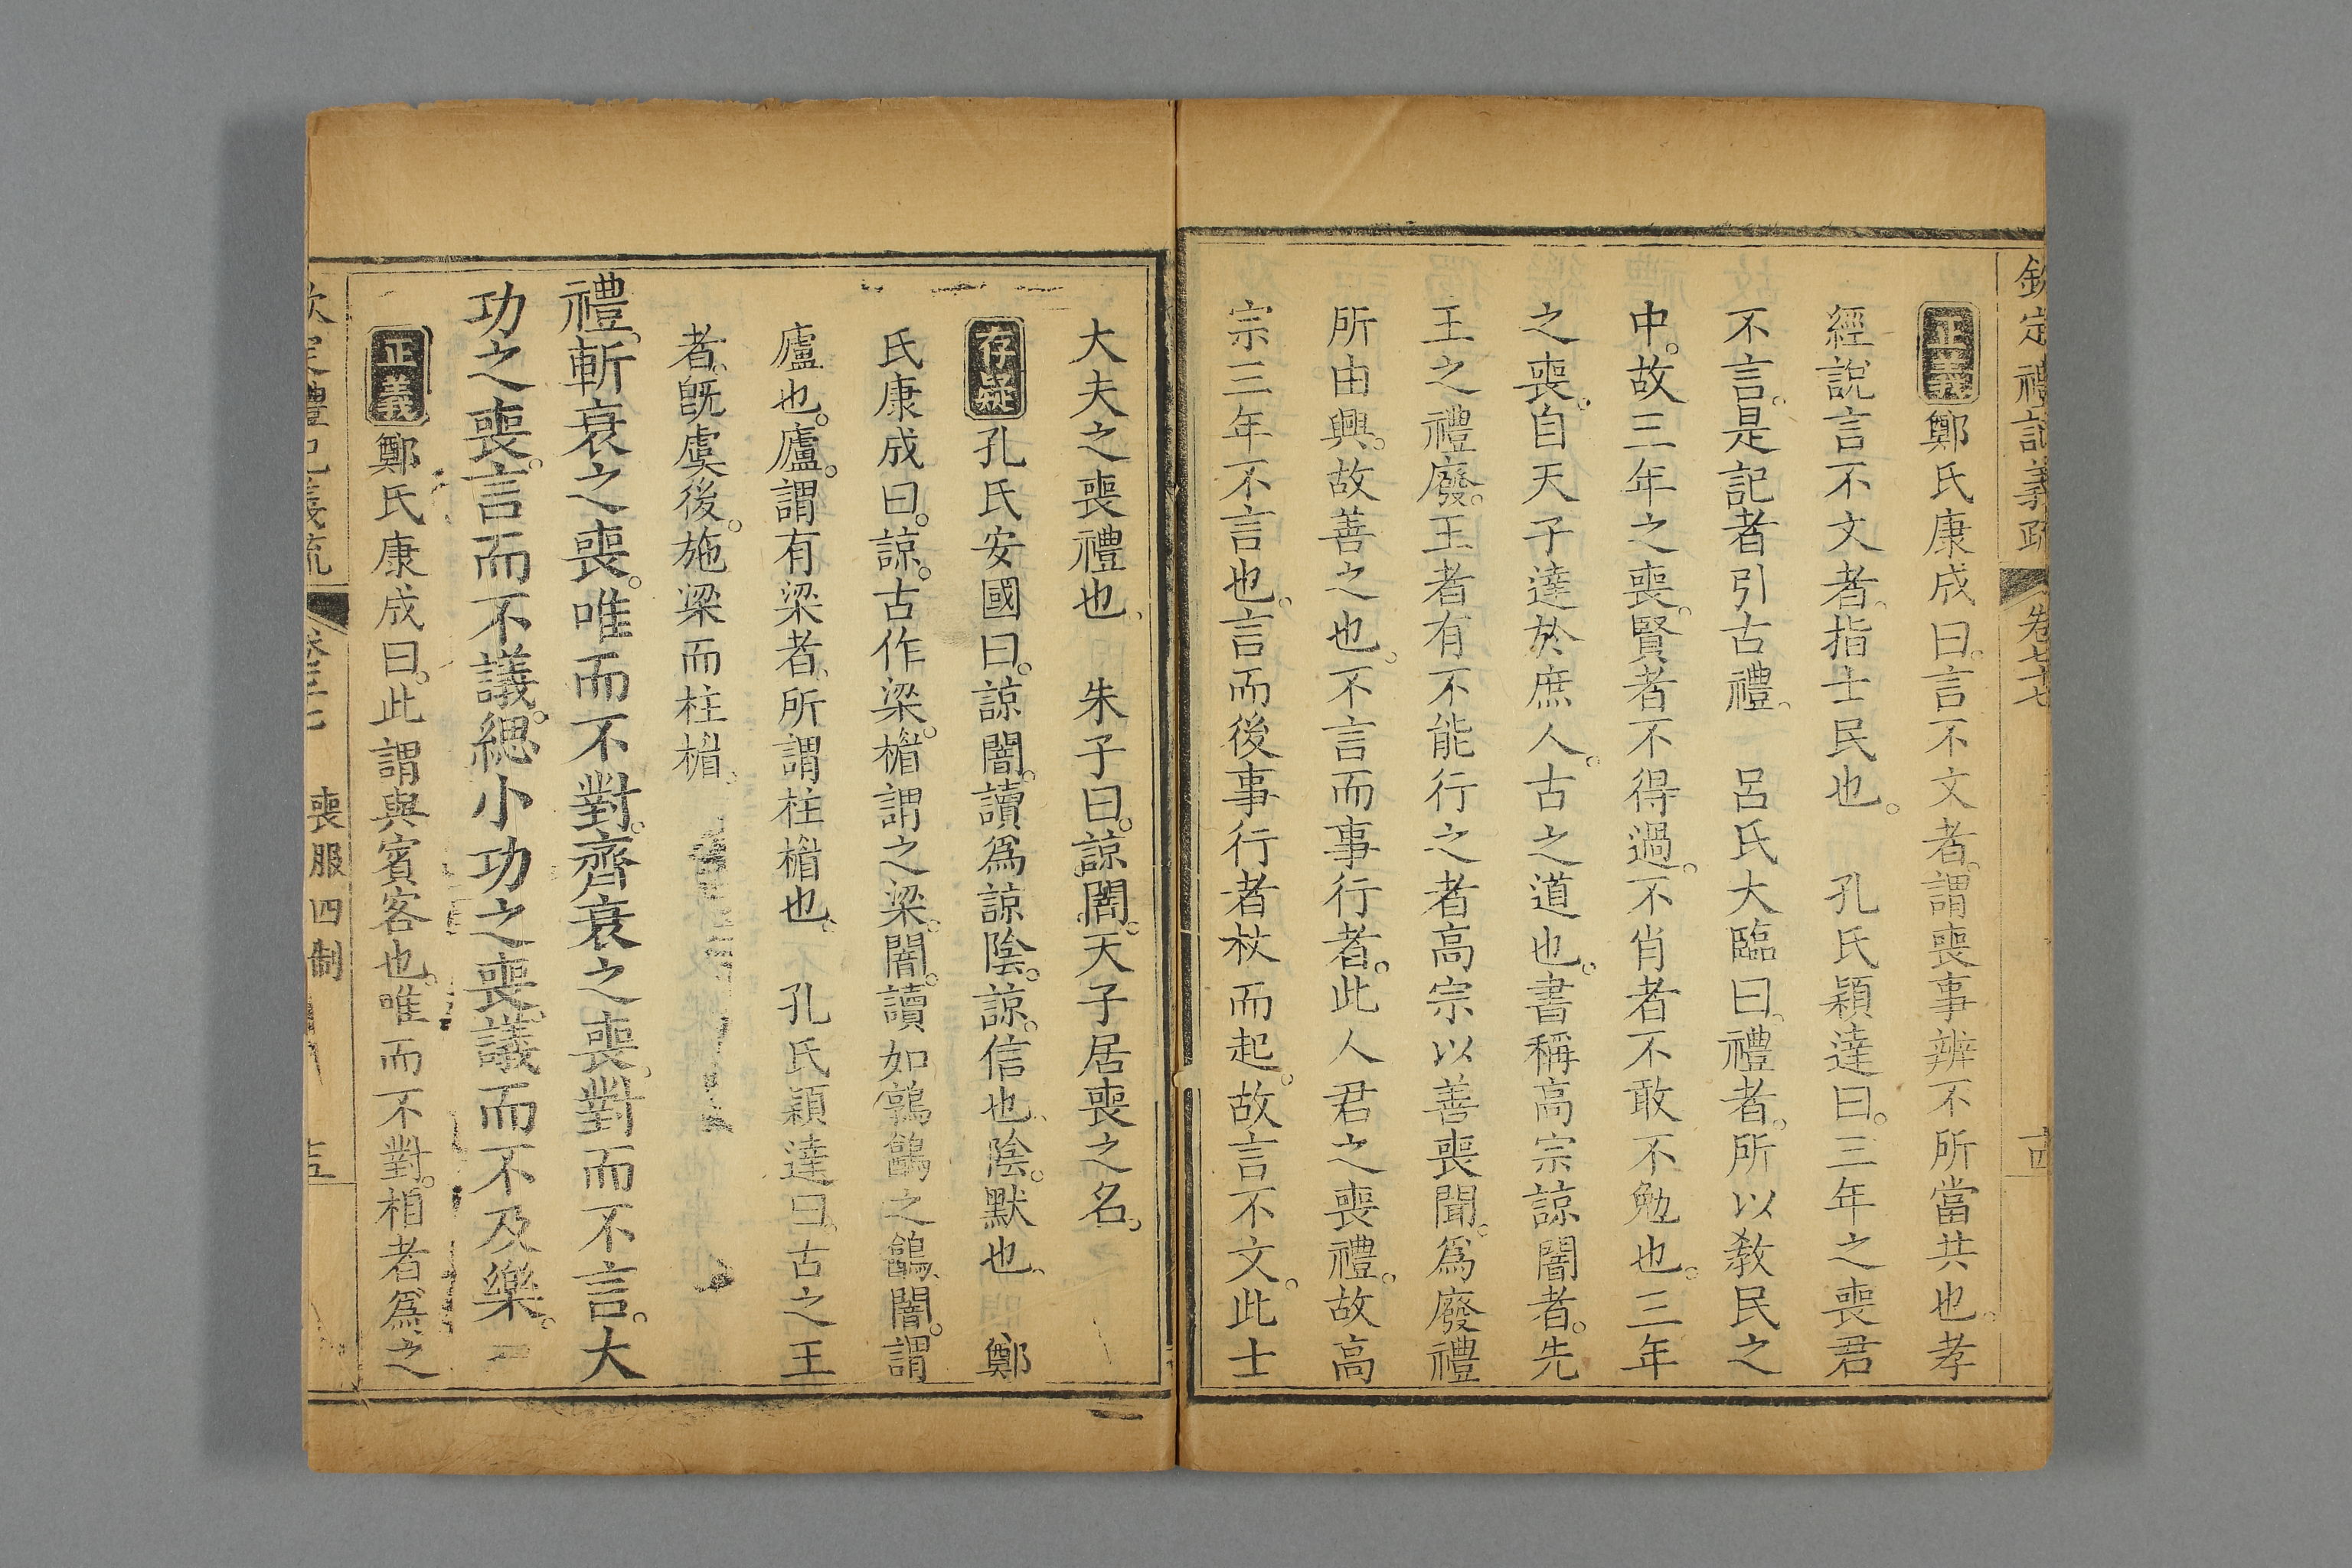 欽定禮記義疏 卷七十七 十四
正義 鄭氏康成曰言不文者謂喪事辨不所當共也孝
經說言不文者指士民也 孔氏穎達曰三年之喪君
不言是記者引古禮 呂氏大臨曰禮者所以敎民之
中故三年之喪賢者不得過不肖者不敢不勉也三年
之喪自天子達於庶人古之道也書稱高宗諒闇者先
王之禮廢王者有不能行之者高宗以善喪聞爲廢禮
所由興故善之也不言而事行者此人君之喪禮故高
宗三年不言也言而後事行者杖而起故言不文此士
大夫之喪禮也 朱子曰諒闇天子居喪之名
存疑 孔氏安國曰諒闇讀爲諒陰諒信也陰默也 鄭
氏康成曰諒古作梁楣謂之梁闇讀如鶉䳺之䳺闇謂
廬也廬謂有梁者所謂柱楣也 孔氏穎達曰古之王
者旣虞後施梁而柱楣
禮斬衰之喪唯而不對齊衰之喪對而不言大
功之喪言而不議緦小功之喪議而不及樂
正義 鄭氏康成曰此謂與賓客也唯而不對相者爲之
喪服四制 十五